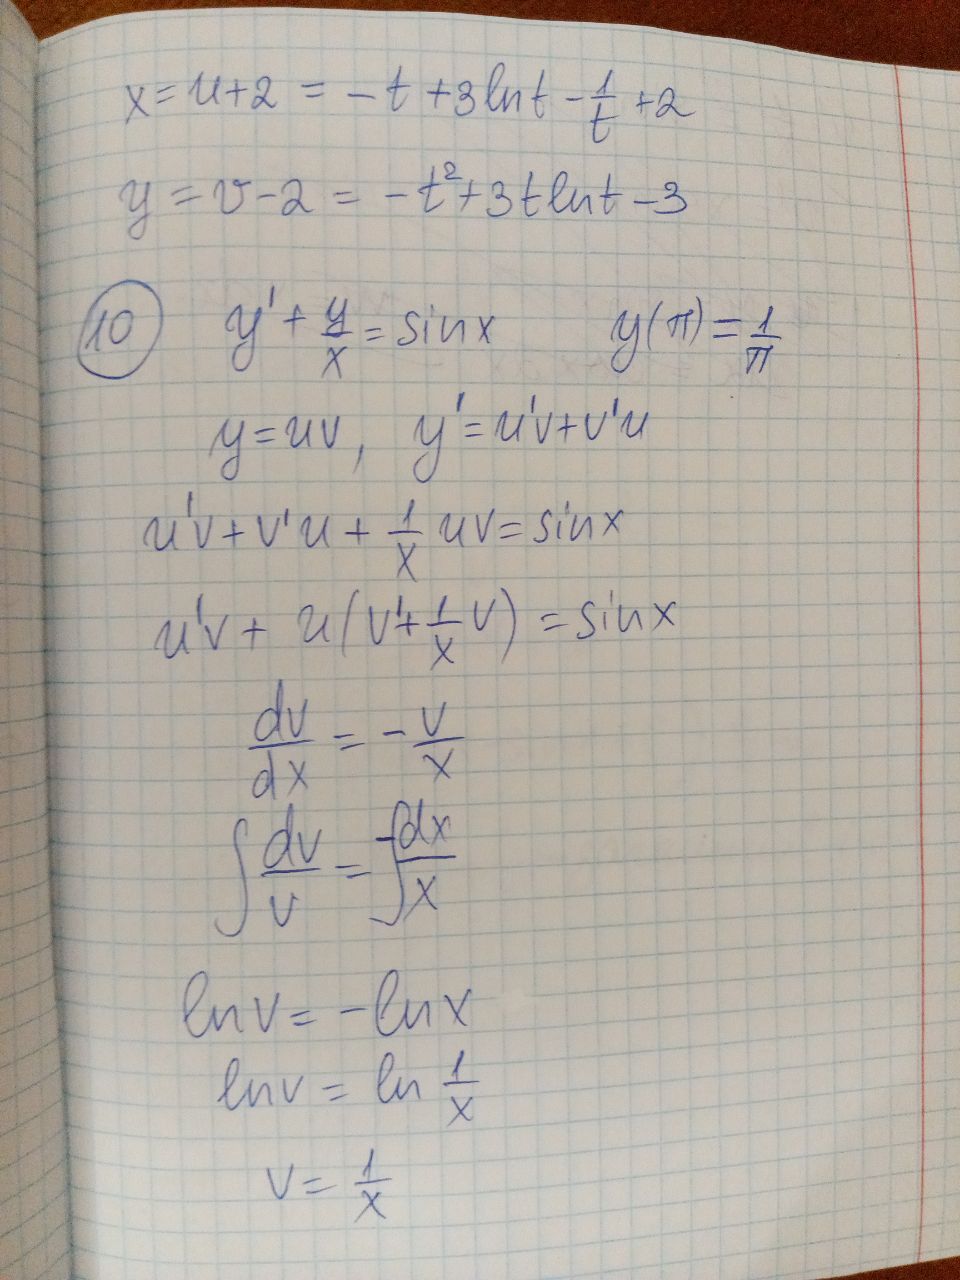 x = u+2 = -t + 3 ln t - 1/t + 2
y = v-2 = -t² + 3t ln t - 3
10 y' + y/x = sin x y(π) = 1/π
y = uv, y' = u'v + v'u
u'v + v'u + 1/x uv = sin x
u'v + u(v' + 1/x v) = sin x
dv/dx = - v/x
∫ dv/v = -∫ dx/x
ln v = -ln x
ln v = ln 1/x
v = 1/x